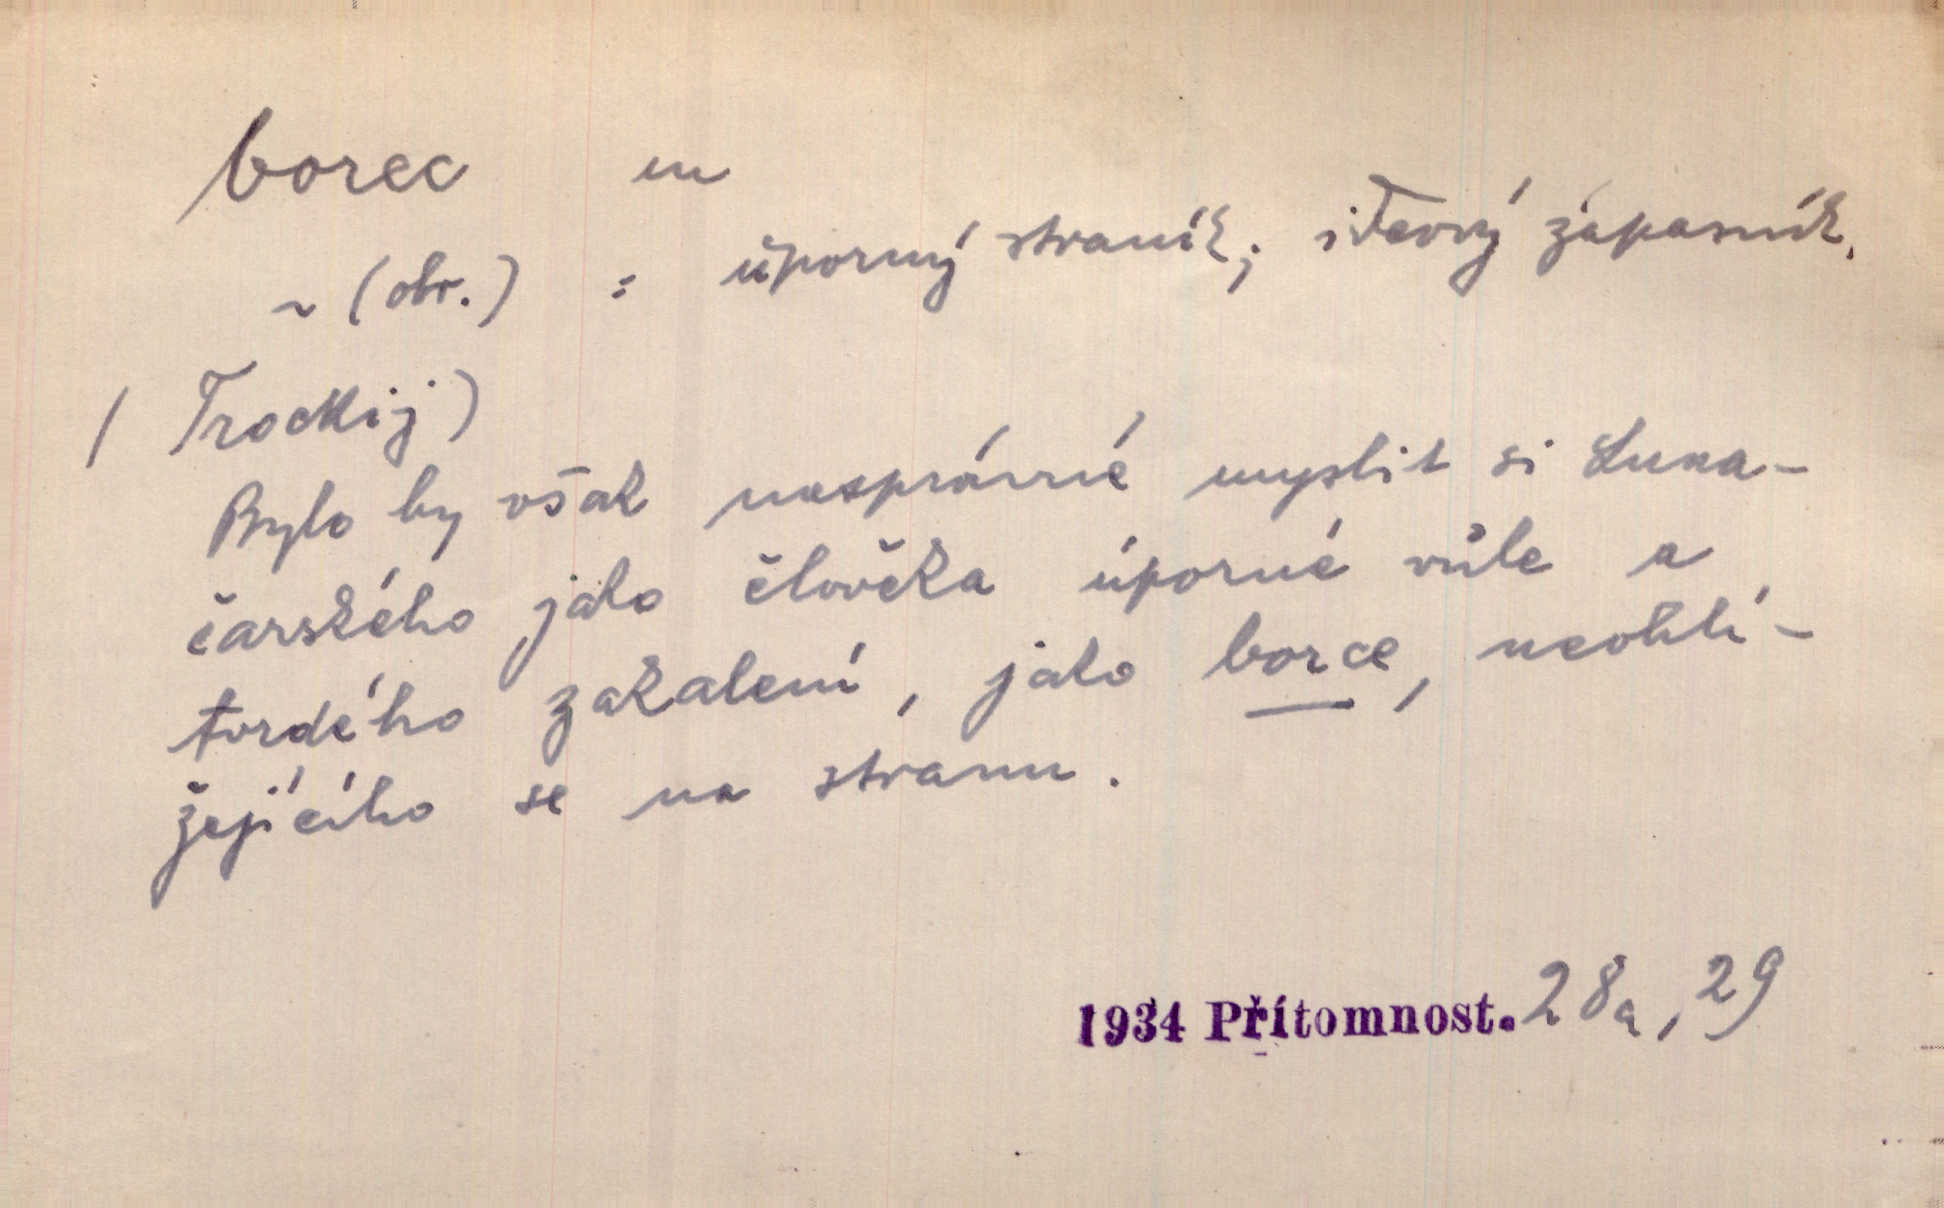 borec m
~ (obr.) = úporný straník; ideový zápasník.
(Trockij)
Bylo by však nesprávné myslit si Luna-
čarského jako člověka úporné vůle a
tvrdého zakalení, jako borce, neohlí-
žejícího se na stranu.
1934 Přítomnost. 28a, 29